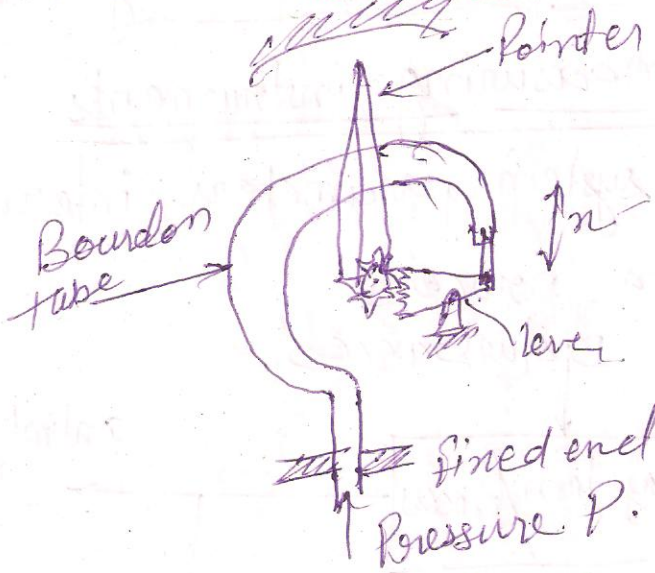 Pointer
Bourdon
tube
x
lever
fixed end
Pressure P.